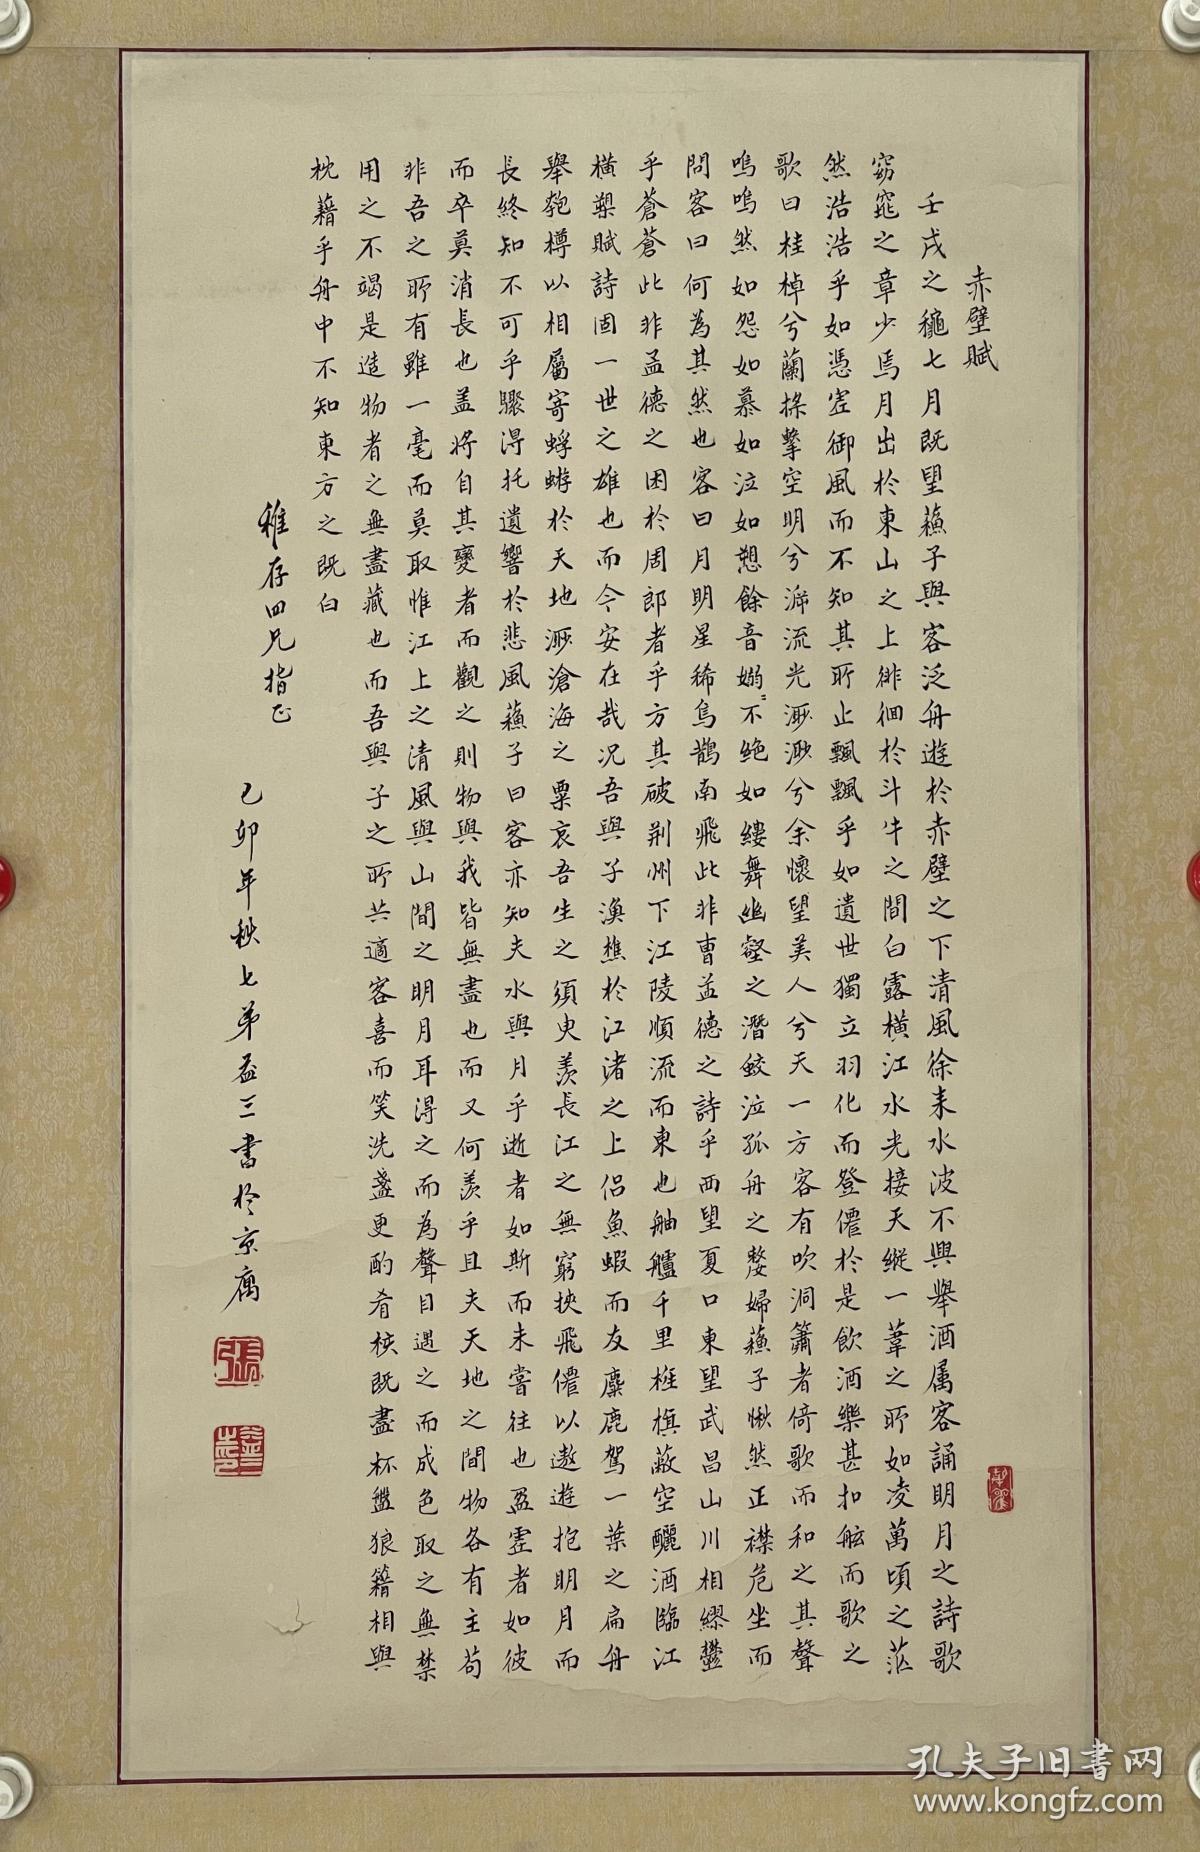 赤壁賦
壬戌之龝七月既望蘓子與客泛舟遊於赤壁之下清風徐来水波不興舉酒属客誦明月之詩歌
窈窕之章少焉月出於東山之上徘徊於斗牛之間白露橫江水光接天縱一葦之所如凌萬頃之茫
然浩浩乎如憑虛御風而不知其所止飄飄乎如遺世獨立羽化而登僊於是飲酒樂甚扣舷而歌之
歌曰桂棹兮蘭槳擊空明兮泝流光渺渺兮余懷望美人兮天一方客有吹洞簫者倚歌而和之其聲
嗚嗚然如怨如慕如泣如愬餘音嫋〻不絶如縷舞幽壑之潛蛟泣孤舟之嫠婦蘓子愀然正襟危坐而
問客曰何為其然也客曰月明星稀烏鵲南飛此非曹孟德之詩乎西望夏口東望武昌山川相繆鬱
乎蒼蒼此非孟德之困於周郎者乎方其破荆州下江陵順流而東也舳艫千里旌旗蔽空釃酒臨江
橫槊賦詩固一世之雄也而今安在哉况吾與子漁樵於江渚之上侣魚蝦而友麋鹿駕一葉之扁舟
舉匏樽以相屬寄蜉蝣於天地渺滄海之粟哀吾生之須臾羨長江之無窮挾飛僊以遨遊抱明月而
長終知不可乎驟得托遺響於悲風蘓子曰客亦知夫水與月乎逝者如斯而未嘗往也盈虛者如彼
而卒莫消長也盖將自其變者而觀之則物與我皆無盡也而又何羨乎且夫天地之間物各有主苟
非吾之所有雖一毫而莫取惟江上之清風與山間之明月耳得之而為聲目遇之而成色取之無禁
用之不竭是造物者之無盡藏也而吾與子之所共適客喜而笑洗盞更酌肴核既盡杯盤狼籍相與
枕藉乎舟中不知東方之既白
稚存四兄指正
己卯年秋七弟益三書於京寓
孔夫子旧书网
www.kongfz.com